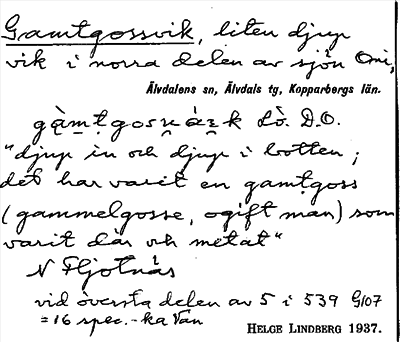 Gamtgossvik, liten djup
vik i norra delen av sjön Omi,
Älvdalens sn, Älvdals tg, Kopparbergs län.
Lò. D.O.
"djup in och djup i botten;
det har varit en gamtgoss
(gammelgosse, ogift man) som
varit där och metat"
N Fljotnäs
vid översta delen av 5 i 539 G107
=16 spec.-ka Vän
HELGE LINDBERG 1937.